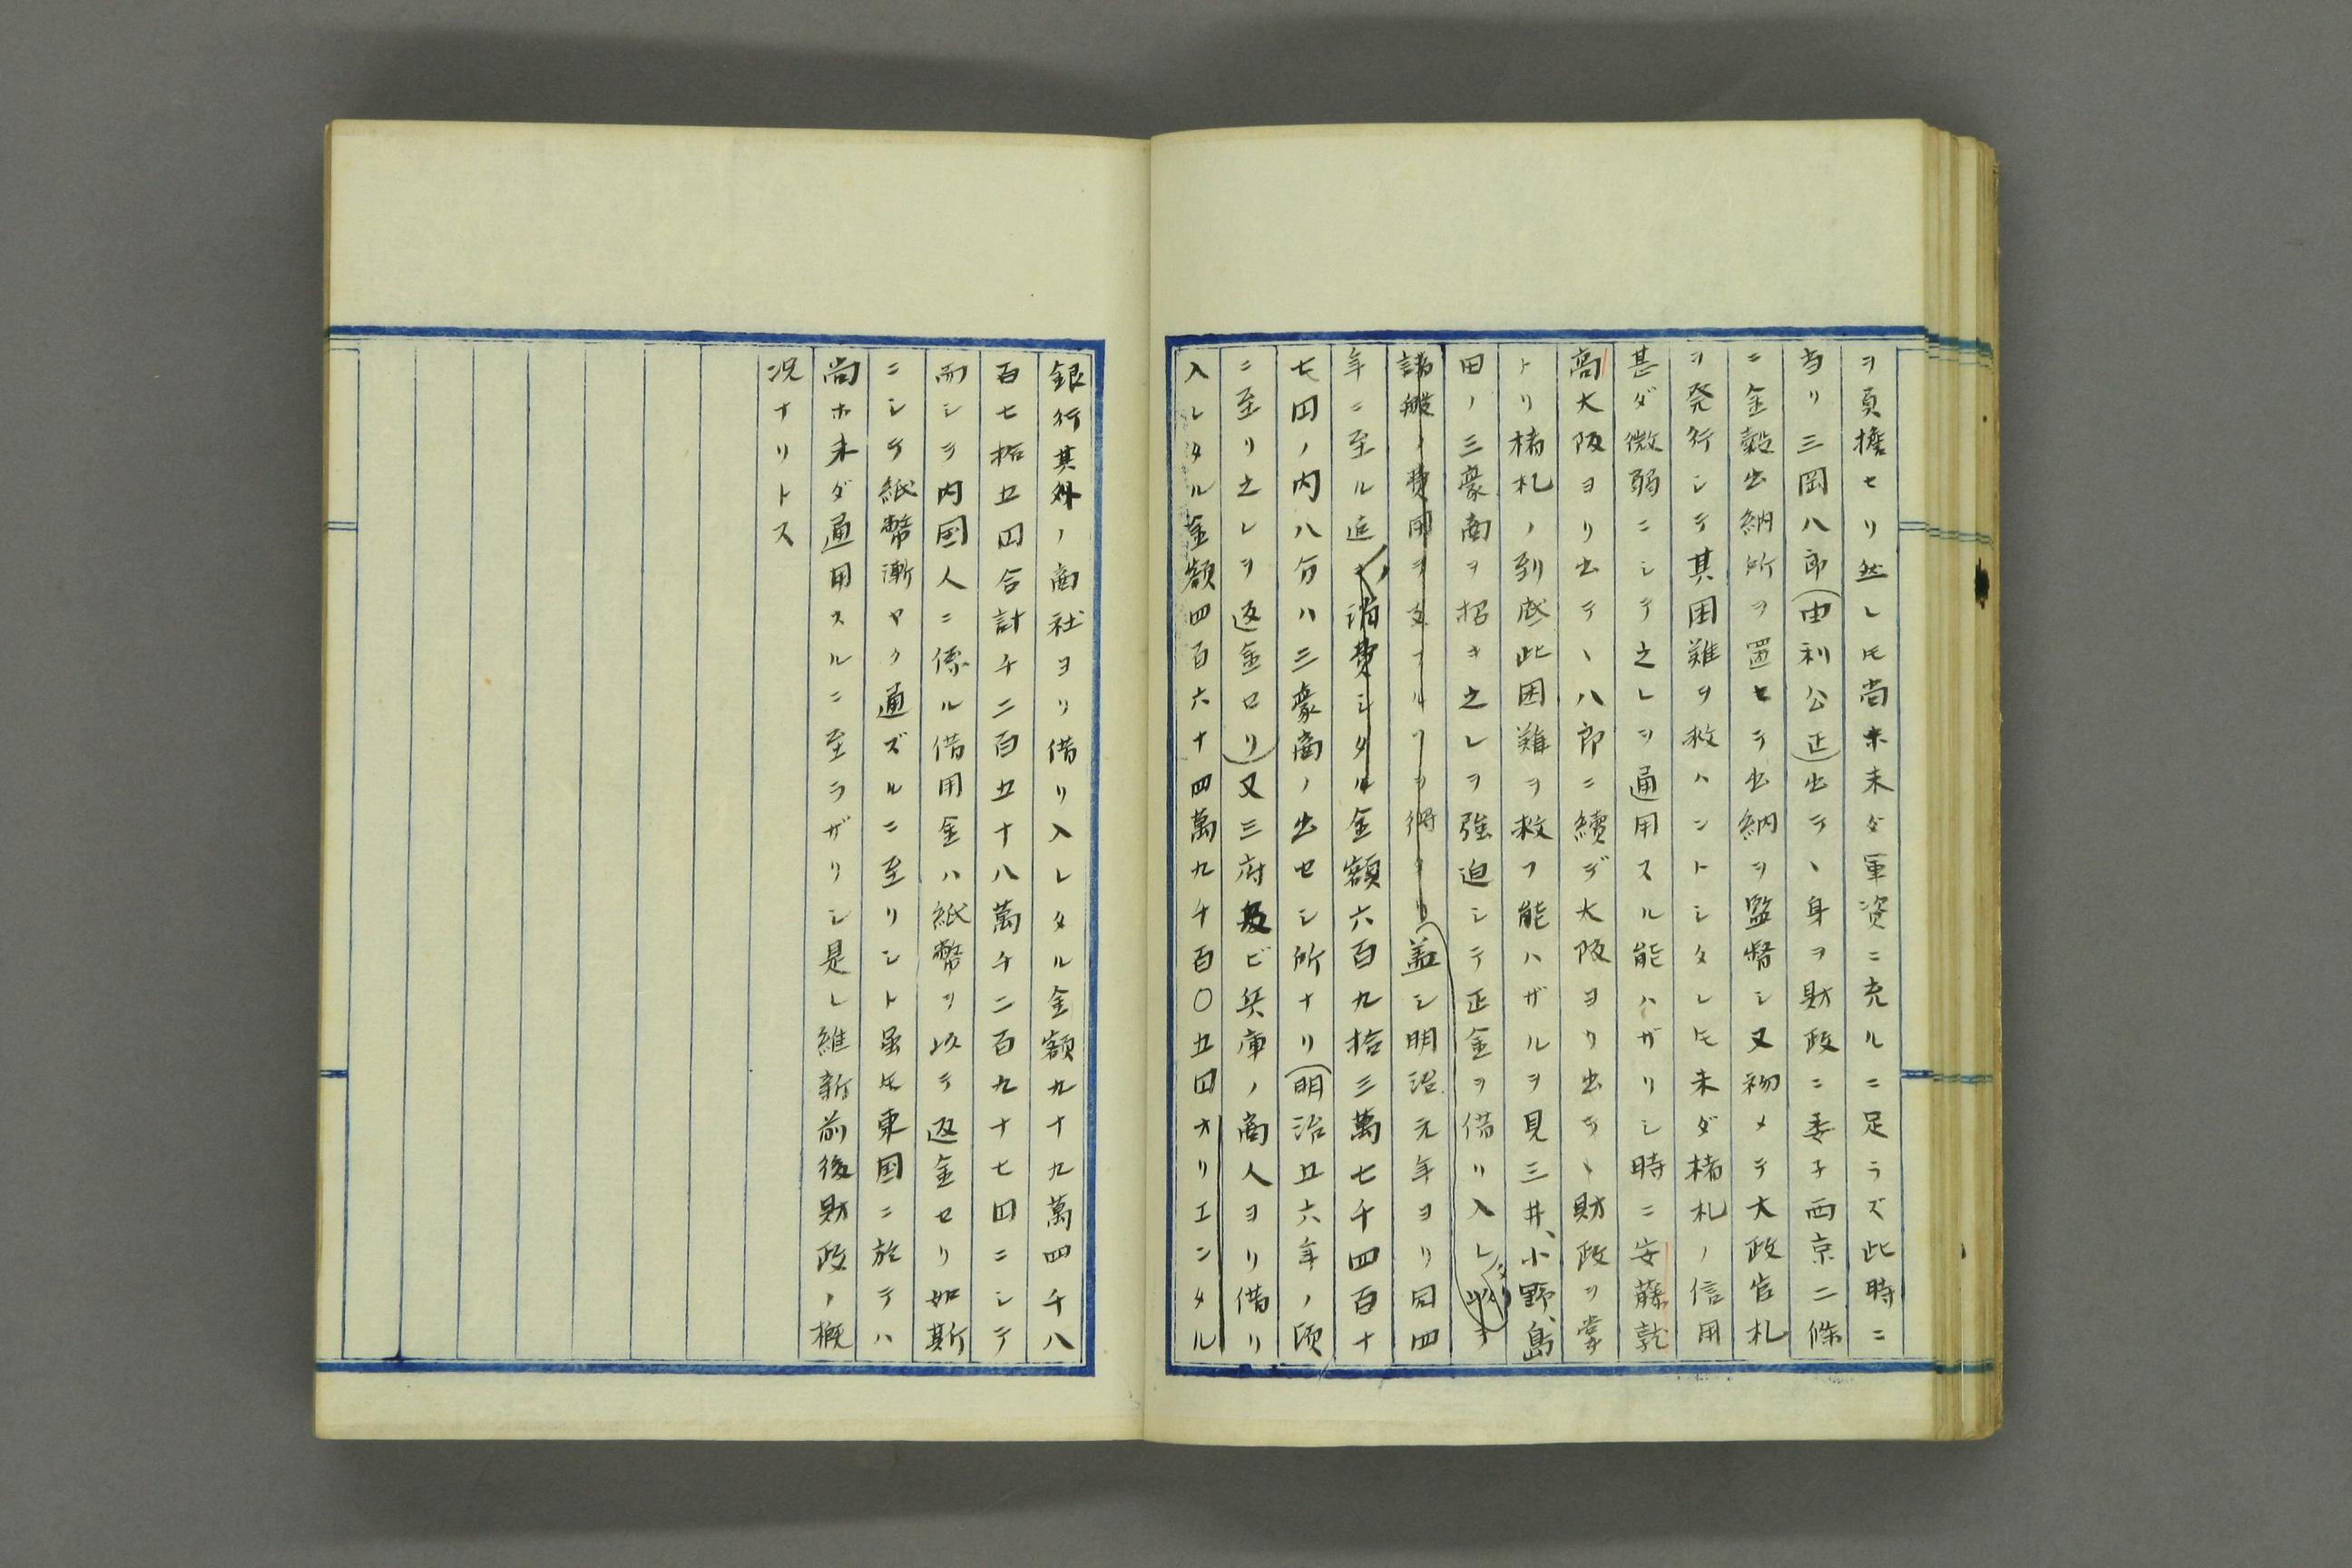 ヲ負擔セリ然レ𪜈尚未ダ軍資ニ充ルニ足ラズ此時ニ
当リ三岡八郎(由利公正)出テヽ身ヲ財政ニ委子西京二條
ニ金穀出納所ヲ置セテ出納ヲ監督シ又初メテ大政官札
ヲ発行シテ其困難ヲ救ハントシタレ𪜈未ダ楮札ノ信用
甚ダ微弱ニシテ之レヲ通用スル能ハザリシ時ニ安藤就
高大阪ヨリ出テヽ八郎ニ續デ大阪ヨリ出テヽ財政ヲ掌
トリ楮札ノ到底此困難ヲ救フ能ハザルヲ見三井、小野、島
田ノ三豪商ヲ招キ之レヲ強迫シテ正金ヲ借リ入レタリ以テ
諸般ノ費用ヲ支フルヿヲ得タリ蓋シ明治元年ヨリ同四
年ニ至ル迄ノ消費シタル金額六百九拾三萬七千四百十
七円ノ内八分ハ三豪商ノ出セシ所ナリ(明治五六年ノ頃
ニ至リ之レヲ返金セリ)又三府及ビ兵庫ノ商人ヨリ借リ
入レタル金額四百六十四萬九千百〇五円オリエンタル
銀行其外ノ商社ヨリ借リ入レタル金額九十九萬四千八
百七拾五円合計千二百五十八萬千二百九十七円ニシテ
而シテ内国人ニ係ル借用金ハ紙幣ヲ以テ返金セリ如斯
ニシテ紙幣漸ヤク通ズルニ至リシト虽𪜈東国ニ於テハ
尚ホ未ダ通用スルニ至ラザリシ是レ維新前後財政ノ概
況ナリトス